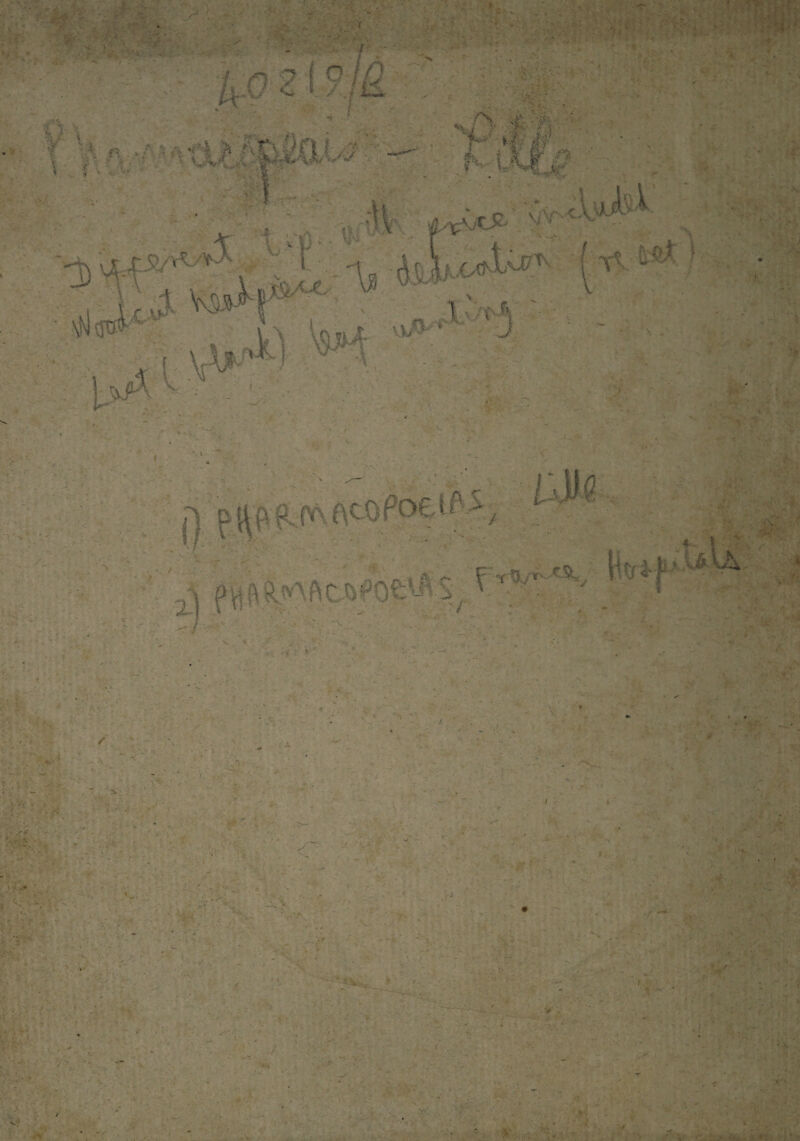 40219/B
Pharmacopoeias - Lille
Different t.p. with price included
Woodcut headpiece to dedication (re set)
Last (blank) leaf wanting
1) PHARMACOPOEIAS, Lille
2) PHARMACOPOEIAS, France, Hospitals